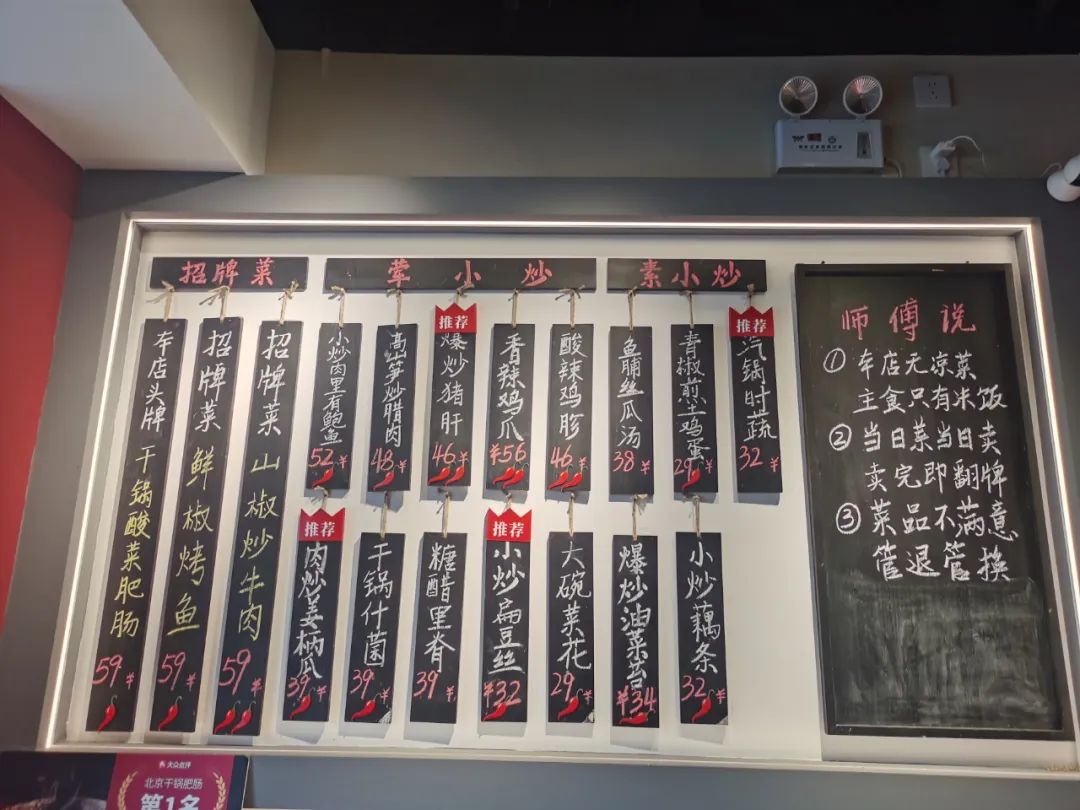 招牌菜
荤小炒
素小炒
车店头牌 干锅酸菜肥肠 59¥
招牌菜 鲜椒烤鱼 59¥
招牌菜 山椒炒牛肉 59¥
小炒肉里有鲍鱼 52¥
高山笋炒腊肉 48¥
推荐
爆炒猪肝 46¥
香辣鸡爪 ¥56
酸辣鸡胗 46¥
鱼脯丝瓜汤 38¥
青椒煎土鸡蛋 29¥
推荐
汽锅时蔬 32¥
推荐
肉炒姜柄瓜 39¥
干锅什菌 39¥
糖醋里脊 39¥
推荐
小炒扁豆丝 ¥32
大碗菜花 29¥
爆炒油菜苔 ¥34
小炒藕条 32¥
师傅说
①车店无凉菜
主食只有米饭
②当日菜当日卖
卖完即翻牌
③菜品不满意
管退管换
大众点评
北京干锅肥肠
第1名